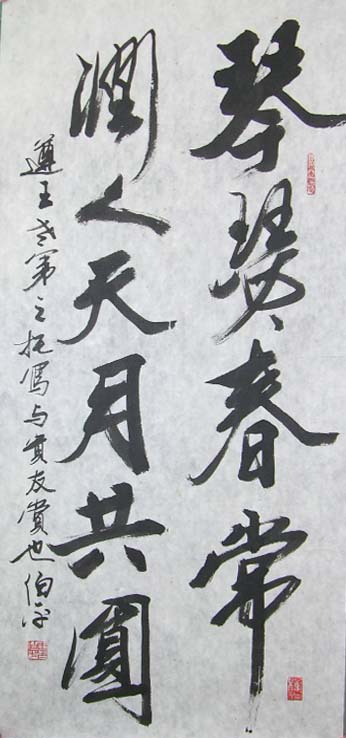 琴瑟春常
潤人天月共圓
遵王老弟之托寫与友賞也伯平